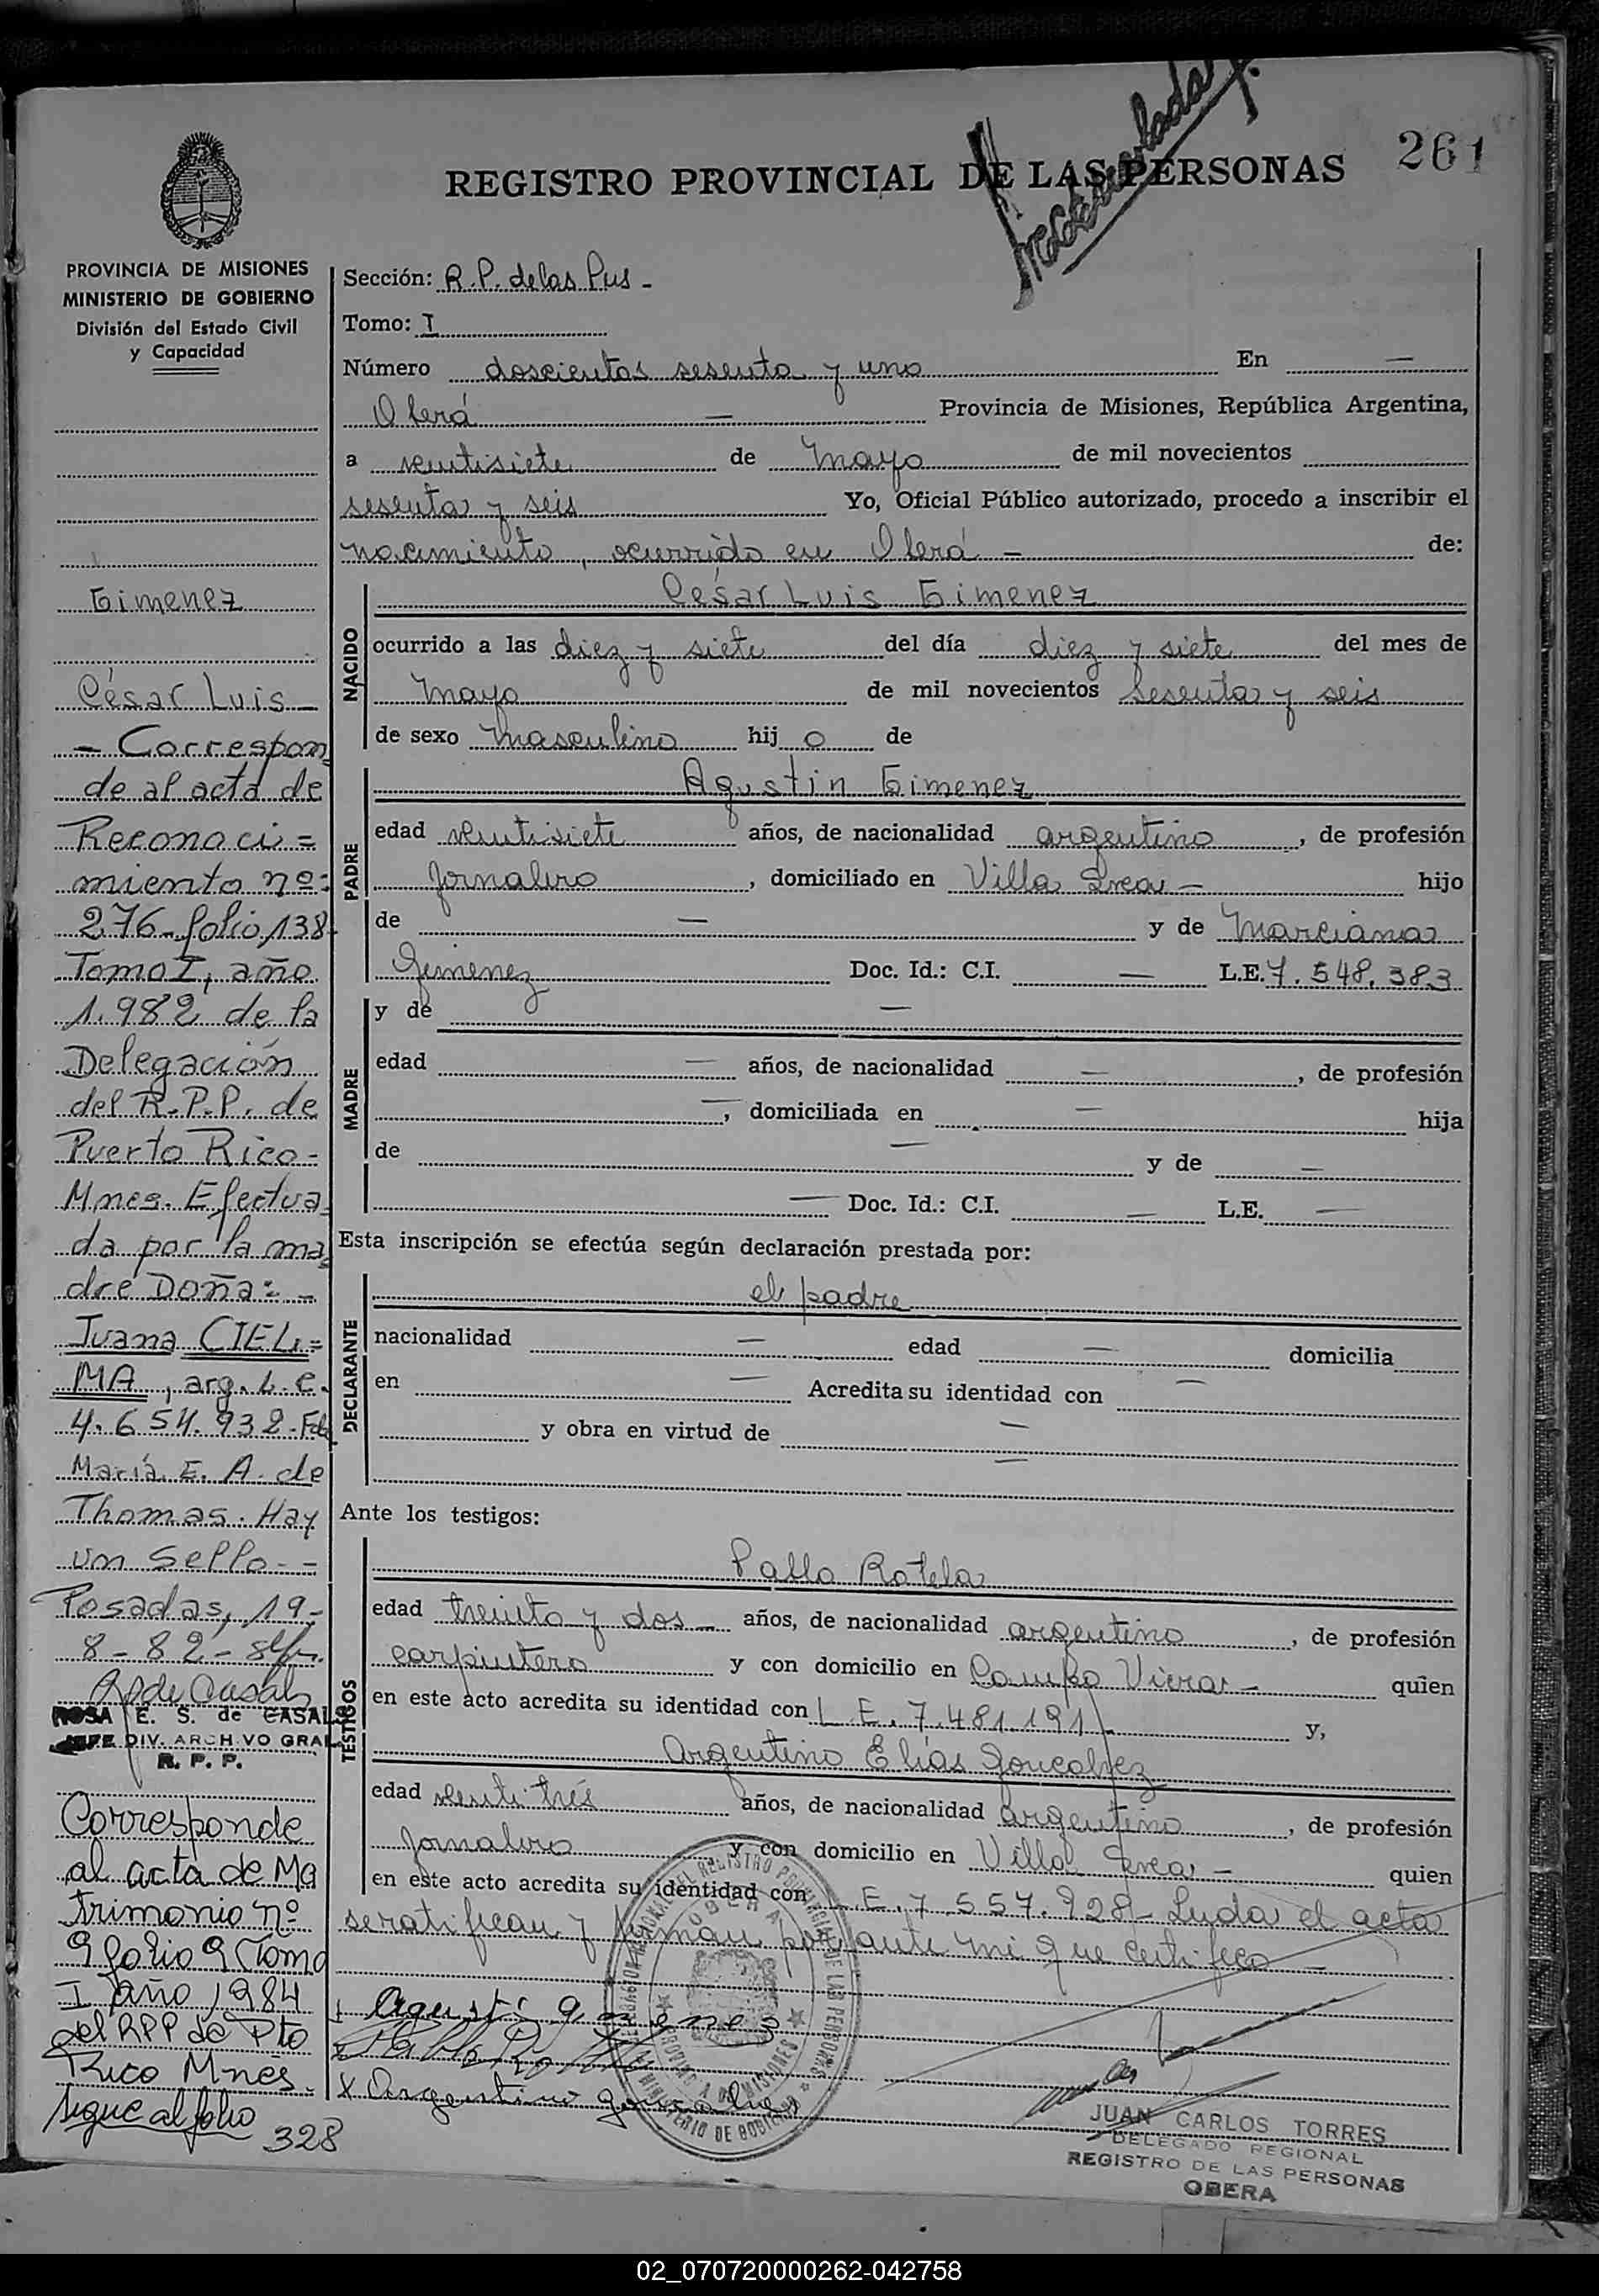 261
REGISTRO PROVINCIAL DE LAS PERSONAS
PROVINCIA DE MISIONES
MINISTERIO DE GOBIERNO
División del Estado Civil
y Capacidad
Gimenez
César Luis -
- Correspon
de al acta de
Reconoci =
miento nº:
276 - folio 138
Tomo I, año
1.982 de la
Delegación
del R.P.P. de
Puerto Rico -
Mnes. Efectua
da por la ma
dre Doña: -
Juana CIELI =
MA, arg. L.C.
4.654.932 - Fdo.
María E. A. de
Thomas. Hay
un sello - -
Posadas, 19 -
8 - 82 -
ROSA E. S. de CASALS
JEFE DIV. ARCHIVO GRAL
R. P. P.
Corresponde
al acta de Ma
trimonio nº
9 folio 9 Tomo
I año 1984
del RPP de Pto
Rico Mnes.
sigue al folio
328
Sección: R.P. de las Pus -
Tomo: I
Número doscientos sesenta y uno En —
Oberá — Provincia de Misiones, República Argentina,
a ventisiete de Mayo de mil novecientos
sesenta y seis Yo, Oficial Público autorizado, procedo a inscribir el
nacimiento, ocurrido en Oberá — de:
NACIDO
César Luis Gimenez
ocurrido a las diez y siete del día diez y siete del mes de
Mayo de mil novecientos sesenta y seis
de sexo Masculino hij o de
PADRE
Agustin Gimenez
edad ventisiete años, de nacionalidad argentino, de profesión
Jornalero, domiciliado en Villa — hijo
de — y de Marciana
Gimenez Doc. Id.: C.I. — L.E. 7.548.383
MADRE
y de —
edad — años, de nacionalidad —, de profesión
—, domiciliada en — hija
de — y de —
— Doc. Id.: C.I. — L.E. —
Esta inscripción se efectúa según declaración prestada por:
DECLARANTE
el padre
nacionalidad — edad — domicilia
en — Acredita su identidad con —
y obra en virtud de —
—
Ante los testigos:
TESTIGOS
Pablo Rotela
edad treinta y dos — años, de nacionalidad argentino, de profesión
carpintero y con domicilio en Campo Viera — quien
en este acto acredita su identidad con L.E. 7.481.191 y,
Argentino Elías Goncalvez
edad venti trés años, de nacionalidad argentino, de profesión
Jornalero y con domicilio en Villa — quien
en este acto acredita su identidad con L.E. 7.557.928 - Leida el acta
se ratifican y firman por ante mi que certifico —
Pablo Rotela
x Argentino
JUAN CARLOS TORRES
DELEGADO REGIONAL
REGISTRO DE LAS PERSONAS
OBERA
02_070720000262-042758